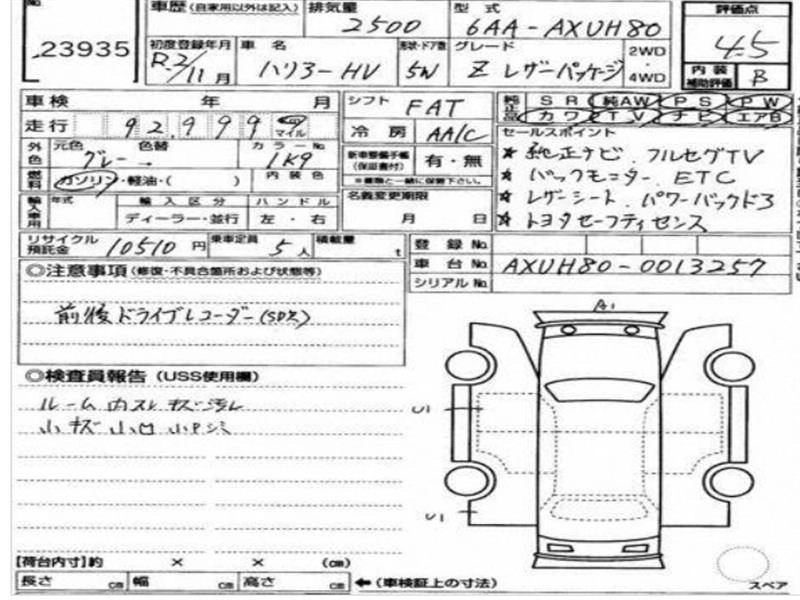 No.
23935
車歴 (自家用以外は記入)
排気量 2500
型式 6AA-AXUH80
評価点
4.5
初度登録年月 R.2/11月
車名 ハリアーHV
形状・ドア数 5W
グレード Z レザーパッケージ
2WD
・
4WD
内装
補助評価 B
車検 年 月
シフト FAT
純正品 SR 純AW PS PW
カワ TV ナビ エアB
走行 92,999 マイル
冷房 AA/C
セールスポイント
★ 純正ナビ、フルセグTV
★ バックモニター、ETC
★ レザーシート、パワーバックドア
★ トヨタセーフティセンス
外色 元色 色替 カラーNo.
グレー → 1K9
新車整備手帳
(保証書付) 有・無
※書類と一緒に保管下さい。
燃料 ガソリン・軽油・( ) 内装色
名義変更期限
月 日
輸入車用 年式 輸入区分 ハンドル
ディーラー・並行 左・右
リサイクル
預託金 10510円 乗車定員 5人 積載量 t
登録No.
車台No. AXUH80-0013257
シリアルNo.
◎注意事項 (修復・不具合箇所および状態等)
前後ドライブレコーダー(SD欠)
◎検査員報告 (USS使用欄)
ルーム内スレ キズ 汚レ
小キズ 小凹
A1
U1
U1
【荷台内寸】約 × × (cm)
長さ cm 幅 cm 高さ cm ←(車検証上の寸法)
スペア